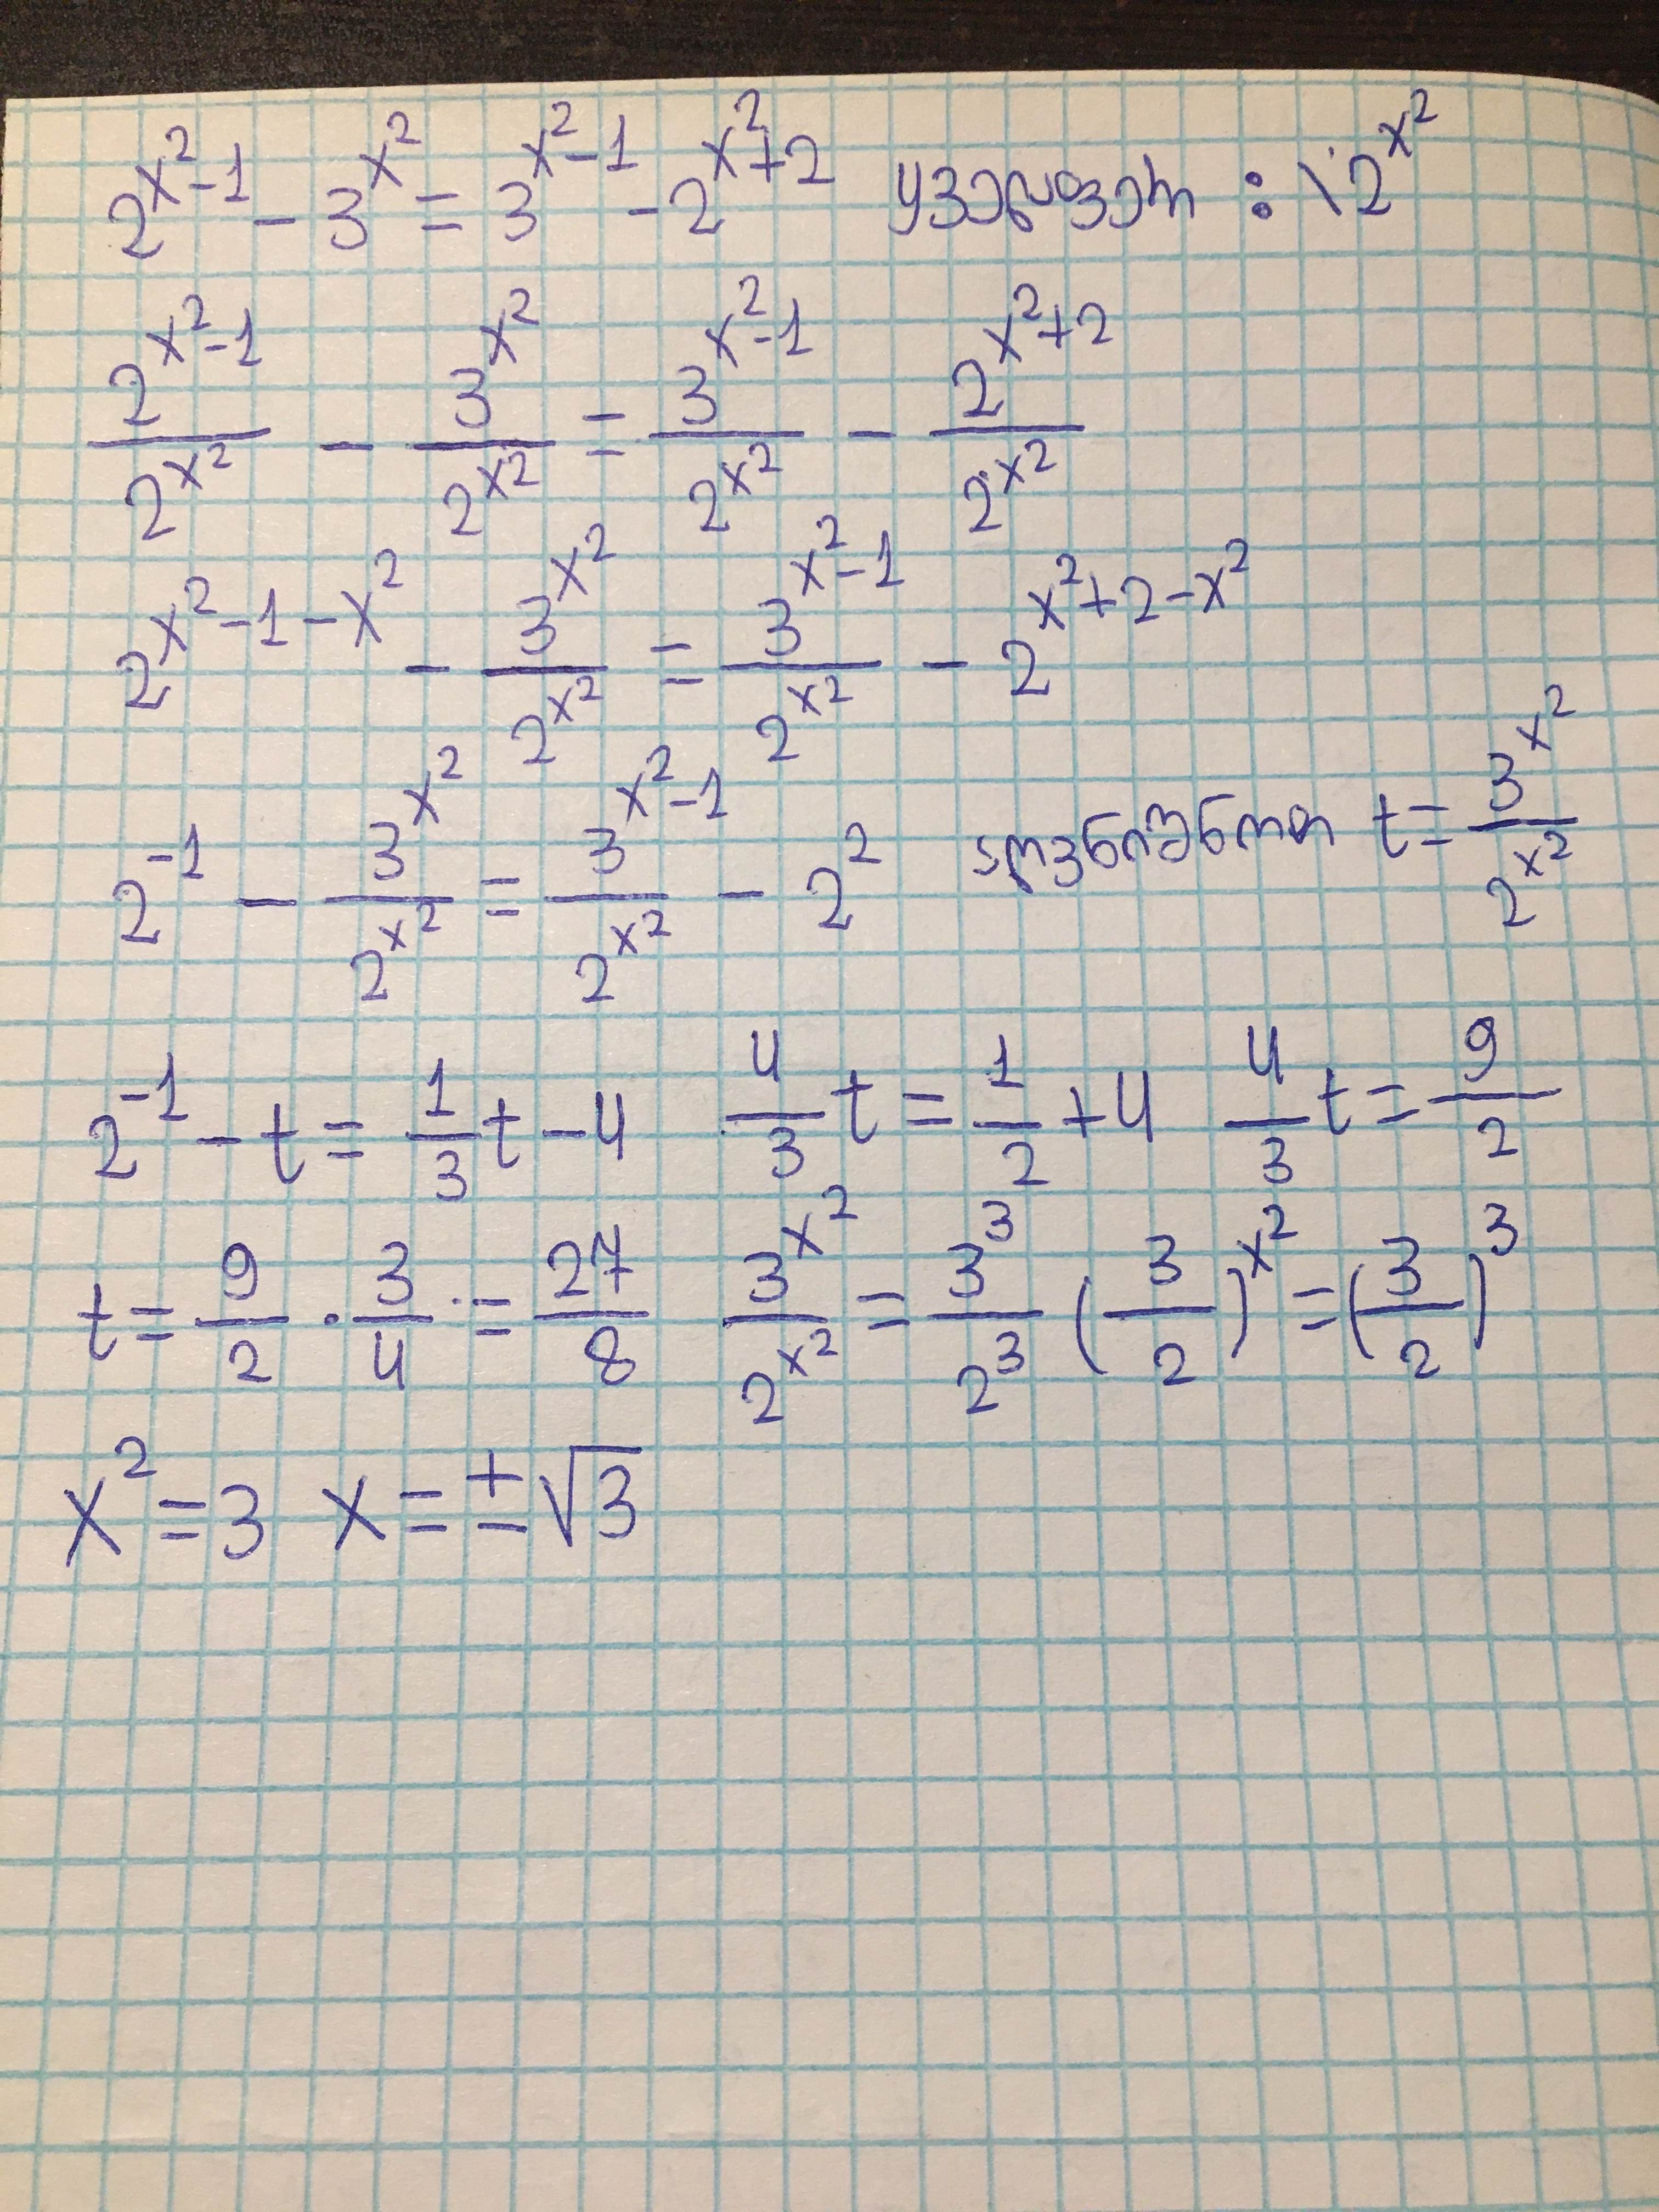 2^{x^2-1} - 3^{x^2} = 3^{x^2-1} - 2^{x^2+2} ყველაფერი : \ 2^{x^2}
\frac{2^{x^2-1}}{2^{x^2}} - \frac{3^{x^2}}{2^{x^2}} = \frac{3^{x^2-1}}{2^{x^2}} - \frac{2^{x^2+2}}{2^{x^2}}
2^{x^2-1-x^2} - \frac{3^{x^2}}{2^{x^2}} = \frac{3^{x^2-1}}{2^{x^2}} - 2^{x^2+2-x^2}
2^{-1} - \frac{3^{x^2}}{2^{x^2}} = \frac{3^{x^2-1}}{2^{x^2}} - 2^2 აღვნიშნოთ t = \frac{3^{x^2}}{2^{x^2}}
2^{-1} - t = \frac{1}{3}t - 4 \frac{4}{3}t = \frac{1}{2} + 4 \frac{4}{3}t = \frac{9}{2}
t = \frac{9}{2} \cdot \frac{3}{4} = \frac{27}{8} \frac{3^{x^2}}{2^{x^2}} = \frac{3^3}{2^3} (\frac{3}{2})^{x^2} = (\frac{3}{2})^3
x^2 = 3 x = ±√3